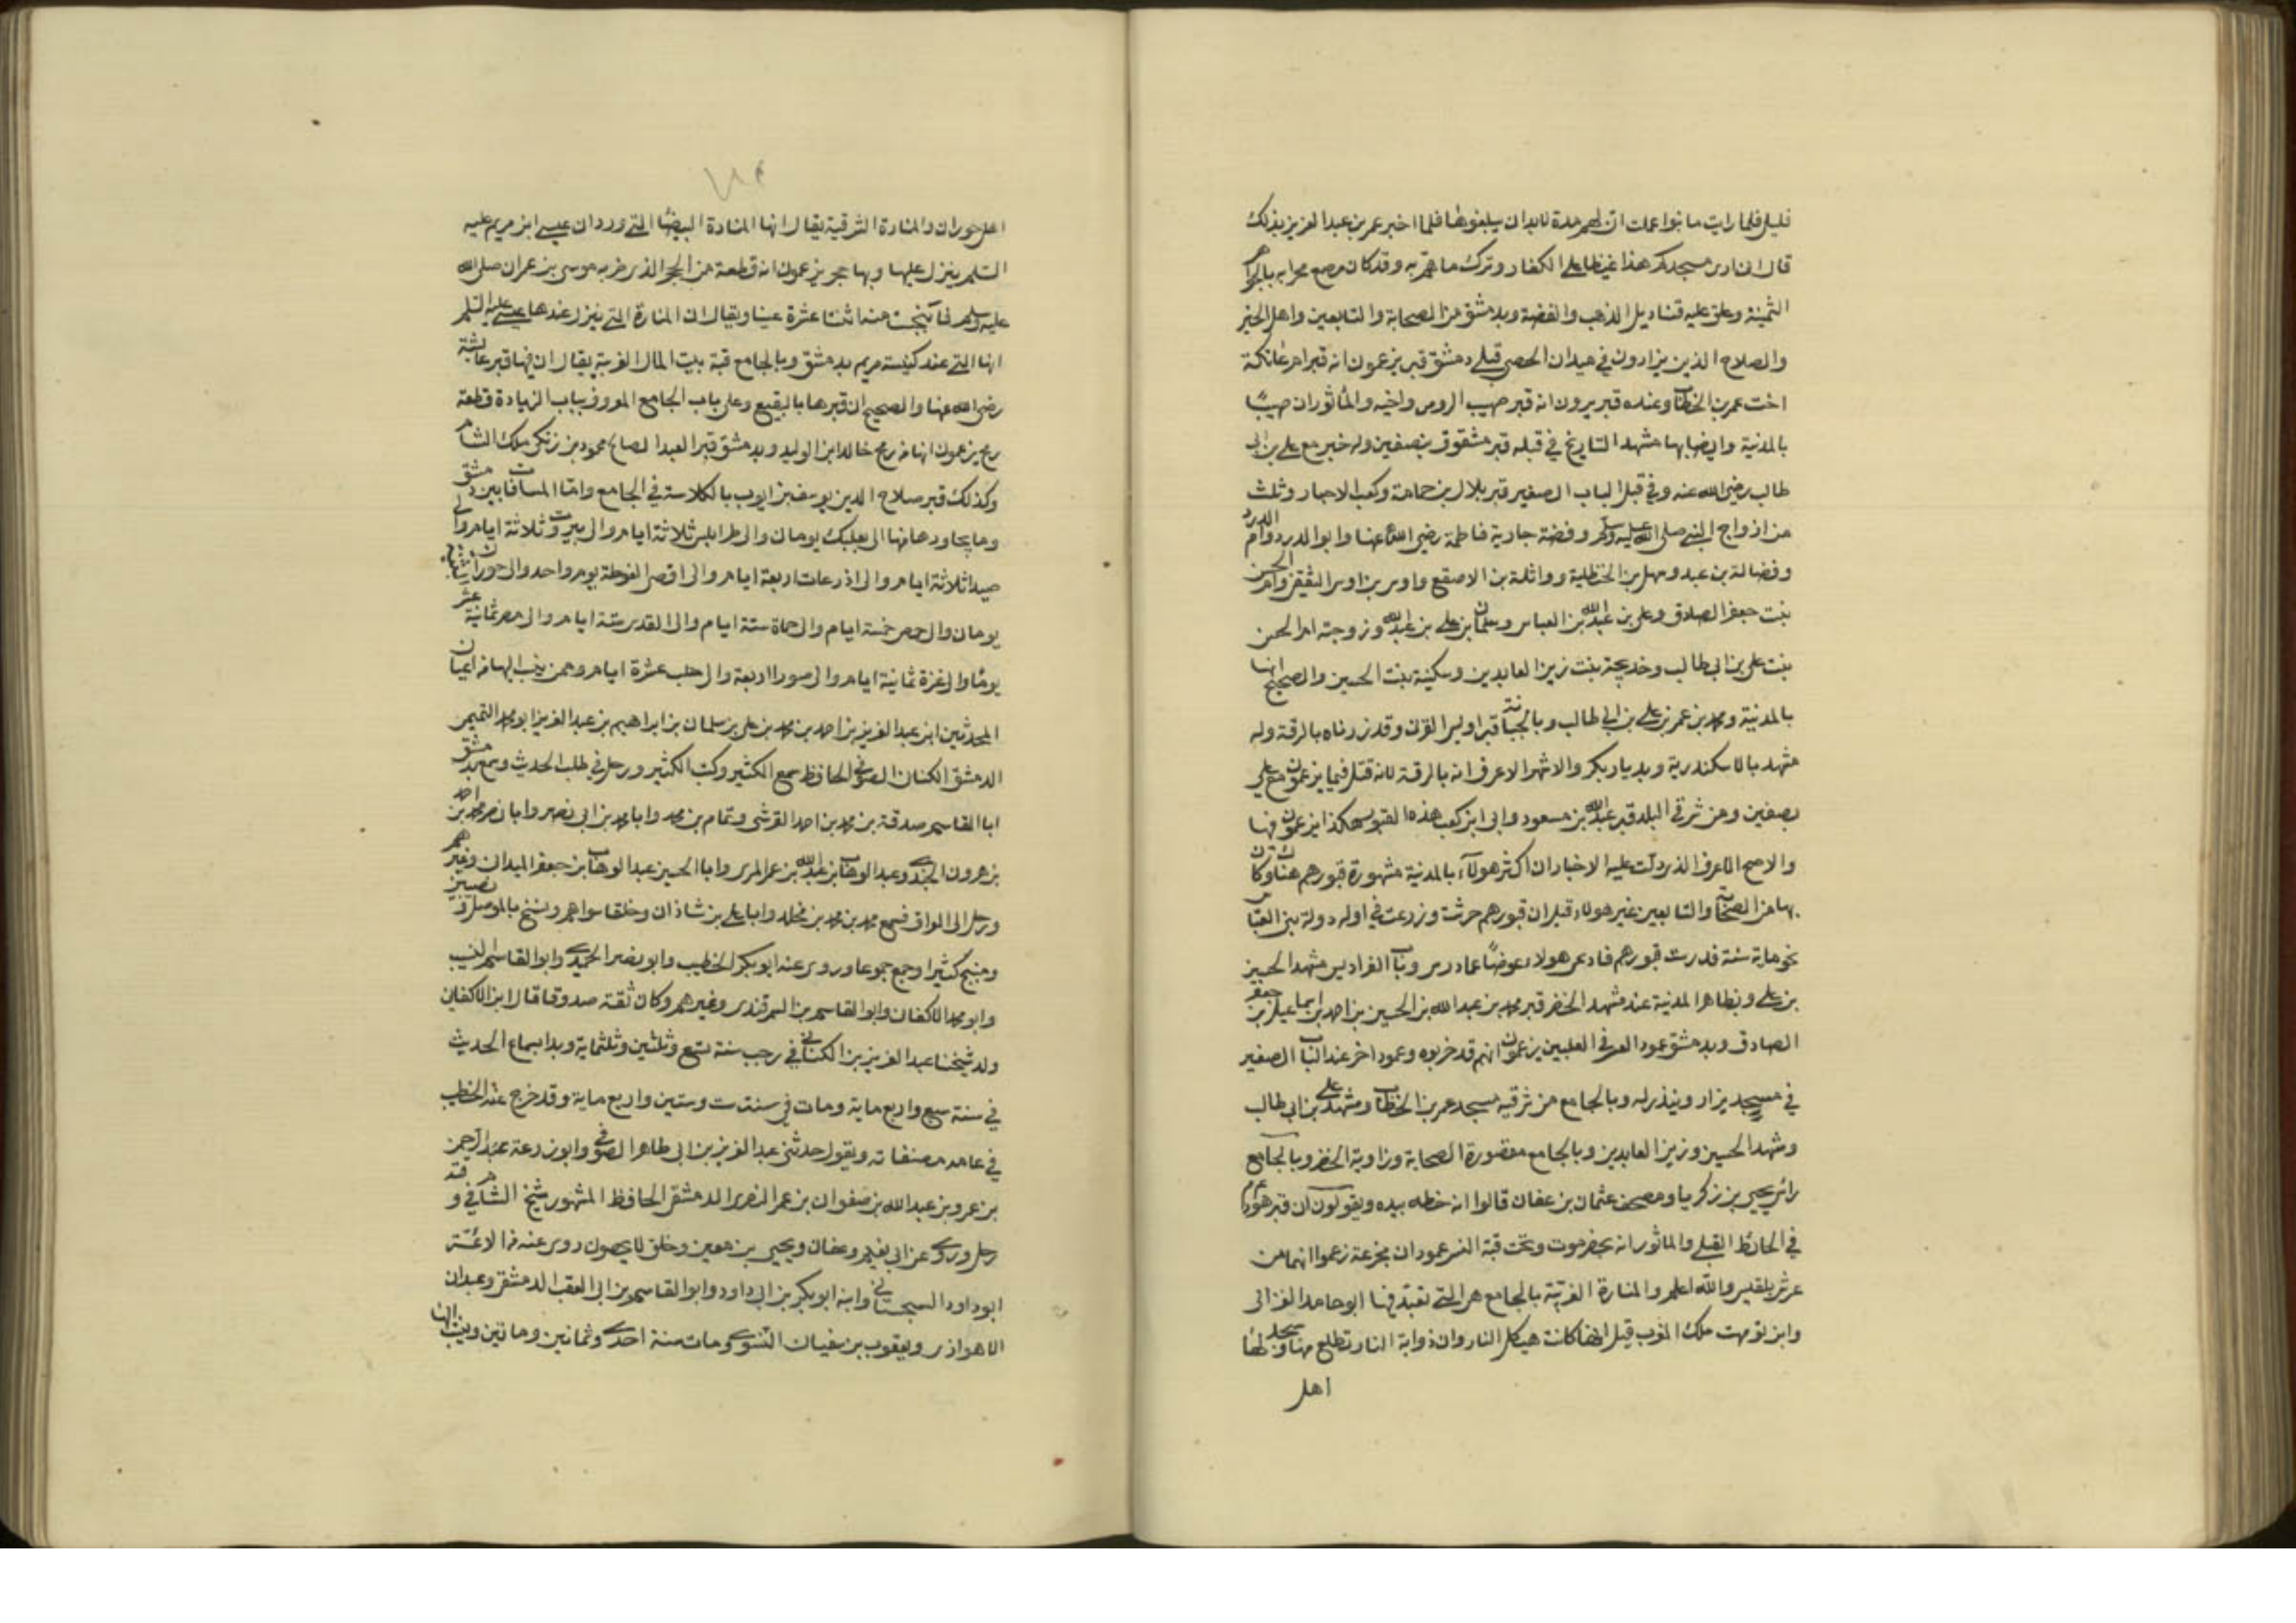 قليل فلما رايت ما بنوا علمت ان لهم مدة لابد ان يبلغوها فلما اخبر عمر بن عبد العزيز بذلك
قال ان ارى مسجدكم هذا غيظا على الكفار وترك ما هم به وقد كان رصع محرابه بالجواهر
الثمينة وعلق عليه قناديل الذهب والفضة وبدمشق من الصحابة والتابعين واهل الخير
والصلاح الذين يزارون في ميدان الحصى قبلي دمشق قبر يزعمون انه قبر ام عاتكة
اخت عمر بن الخطاب وعنده قبر يرون انه قبر صهيب الرومي واخيه والمأثور ان صهيبًا
بالمدينة وايضا بها مشهد التاريخ في قبلته قبر مشقوق بنصفين وله خبر مع علي بن ابي
طالب رضي الله عنه وفي قبلي الباب الصغير قبر بلال بن حمامة وكعب الاحبار وثلث
من ازواج النبي صلى الله عليه وسلم وفضة جارية فاطمة رضي الله عنها وابو الدرداء وام الدرداء
وفضالة بن عبيد وسهل بن الحنظلية وواثلة بن الاسقع واوس بن اوس الثقفي وام الحسن
بنت جعفر الصادق وعلي بن عبد الله بن العباس وسلمان بن علي بن عبد الله وزوجته ام الحسن
بنت علي بن ابي طالب وخديجة بنت زين العابدين وسكينة بنت الحسين والصحيح انها
بالمدينة ومحمد بن عمر بن علي بن ابي طالب وبالجبانة قبر اويس القرني وقد زرناه بالرقة وله
مشهد بالاسكندرية وبديار بكر والاشهر الاعرف انه بالرقة لانه قتل فيما يزعمون مع علي
بصفين ومن شرقي البلد قبر عبد الله بن مسعود وابي ابن كعب هذه القبور هكذا يزعمون فيها
والاصح الاعرف الذي دلت عليه الاخبار ان اكثر هولآء بالمدينة مشهورة قبورهم هناك وكان
بها من الصحابة والتابعين غير هولاء قيل ان قبورهم حرثت وزرعت في اول دولة بني العباس
نحو ماية سنة فدرست قبورهم فادعى هولاء عوضًا عما درس وباب الفراديس مشهد الحسين
بن علي وبظاهر المدينة عند مشهد الخضر قبر محمد بن عبد الله بن الحسين بن احمد بن اسماعيل بن جعفر
الصادق وبدمشق عمود العسر في العلبيين يزعمون انهم قد خربوه وعمود اخر عند الباب الصغير
في مسجد يزار وينذر له وبالجامع من شرقيه مسجد عمر بن الخطاب ومشهد علي بن ابي طالب
ومشهد الحسين وزين العابدين وبالجامع مقصورة الصحابة وزاوية الخضر وبالجامع
راس يحيى بن زكريا ومصحف عثمان بن عفان قالوا انه خطه بيده ويقولون ان قبر هود
في الحائط القبلي والماثور انه بحضرموت وتحت قبة النسر عمودان مجزعة زعموا انهما من
عرش بلقيس والله اعلم والمنارة الغربية بالجامع هي التي تعبد فيها ابو حامد الغزالي
وابن تومرت ملك المغرب قيل انها كانت هيكل النار وان ذوابة النار تطلع منها ويسجد لها
اهل
اهل حوران والمنارة الشرقية يقال انها المنارة البيضا التي ورد ان عيسى ابن مريم عليه
السلم ينزل عليها وبها حجر يزعمون انه قطعة من الحجر الذي ضربه موسى بن عمران صلى الله
عليه وسلم فانبجست منه اثنتا عشرة عينا ويقال ان المنارة التي ينزل عندها عيسى عليه السلم
انها التي عند كنيسة مريم بدمشق وبالجامع قبة بيت المال الغربية يقال ان فيها قبر عائشة
رضي الله عنها والصحيح ان قبرها بالبقيع وعلى باب الجامع المعروف بباب الزيادة قطعة
رمح يزعمون انها من رمح خالد ابن الوليد وبدمشق قبر العبد الصالح محمود بن زنكي ملك الشام
وكذلك قبر صلاح الدين يوسف بن ايوب بالكلاسة في الجامع واما المسافات بين دمشق
وما يجاورها فمنها الى بعلبك يومان والى طرابلس ثلاثة ايام والى بيروت ثلاثة ايام والى
صيدا ثلاثة ايام والى اذرعات اربعة ايام والى اقصى الغوطة يوم واحد والى حوران والبثنية
يومان والى حمص خمسة ايام والى حماة ستة ايام والى القدس ستة ايام والى مصر ثمانية عشر
يومًا والى غزة ثمانية ايام والى صور اربعة والى حلب عشرة ايام وممن ينسب اليها من اعيان
المحدثين ابن عبد العزيز بن احمد بن محمد بن علي بن سلمان بن ابراهيم بن عبد العزيز ابو محمد التميمي
الدمشقي الكتاني الصوفي الحافظ سمع الكثير وكتب الكثير ورحل في طلب الحديث وسمع بدمشق
ابا القاسم صدقة بن محمد بن احمد القرشي وتمام بن محمد وابا محمد بن ابي نصر وابا نصر محمد بن احمد
بن هرون الجندي وعبد الوهاب بن عبد الله بن عمر المري وابا الحسين عبد الوهاب بن جعفر الميداني وغيرهم
ورحل الى العراق فسمع محمد بن محمد بن مخلد وابا علي بن شاذان وخلقا سواهم ونسخ بالموصل ونصيبين
ومنبج كثيرا وجمع جموعا وروى عنه ابو بكر الخطيب وابو نصر الحميدي وابو القاسم النسيب
وابو محمد الاكفاني وابو القاسم بن السمرقندي وغيرهم وكان ثقة صدوقا قال ابن الاكفاني
ولد شيخنا عبد العزيز بن الكتاني في رجب سنة تسع وثلثين وثلثماية وبدا بسماع الحديث
في سنة سبع واربع ماية ومات في سنة ست وستين واربع ماية وقد خرج عنه الخطيب
في عامة مصنفاته ويقول حدثني عبد العزيز بن ابي طاهر الصوفي وابو زرعة عبد الرحمن
بن عمرو بن عبد الله بن صفوان بن عمر النصري الدمشقي الحافظ المشهور شيخ الشام في وقته
رحل وروى عن ابي نعيم وعفان ويحيى بن معين وخلق لا يحصون روى عنه من الائمة
ابو داود السجستاني وابنه ابو بكر بن ابي داود وابو القاسم بن ابي العقب الدمشقي وعبدان
الاهوازي ويعقوب بن سفيان النسوي ومات سنة احدى وثمانين وماتين وينسب اليها